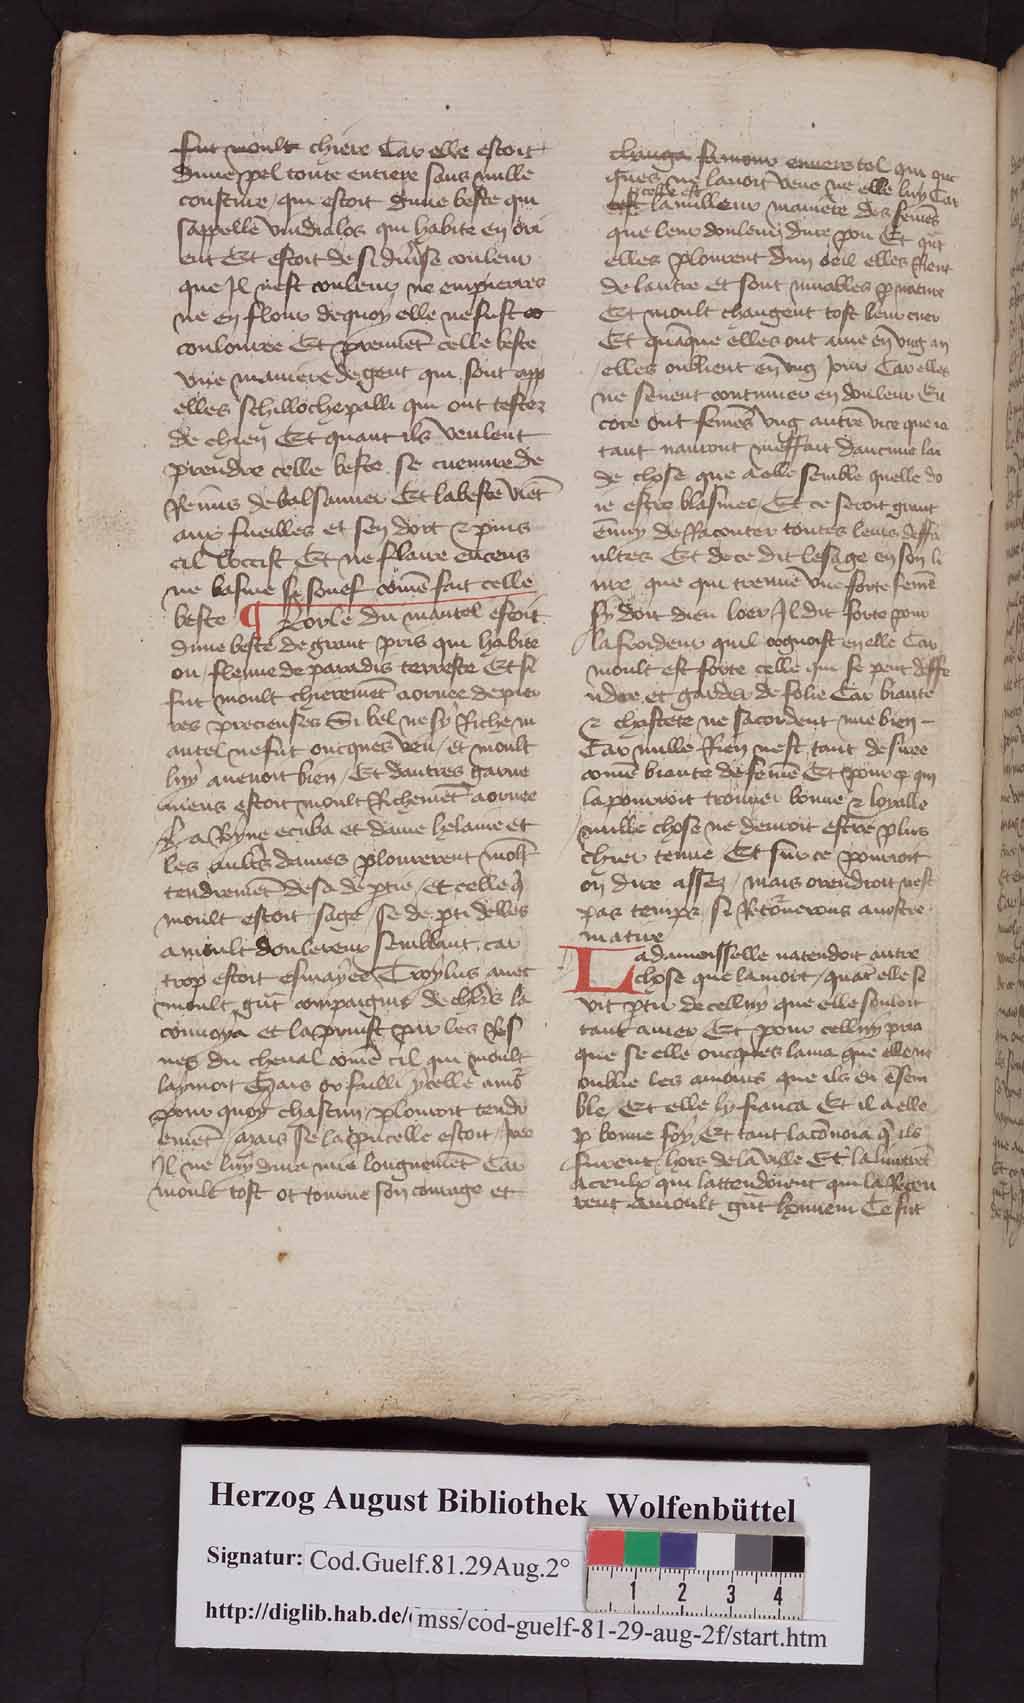 fut moult chiere Car elle estoit
dune pel toute entiere sans nulle
cousture / qui estoit dune beste qui
sappelle dindialos qui habite en ori
ent Et estoit de si diuse couleur
que Il nest couleur ne en pierres
ne en flour dequoy elle ne fust
coulouree Et prennēt celle beste
vne maniere de gent qui sont app
elles schillochepalli qui ont testes
de chien Et quant ils veulent
prendre celle beste se cueuure de
Reims de balsamier Et la beste viēt
aux fueilles et sen dort & puis
cil loccist Et ne flaire encens
ne basme si souef cōme fait celle
beste ¶ Lorle du mantel estoit
dune beste de grant pris qui habite
ou fleuue de paradis terrestre Et si
fut moult chieremēt aornee de pier
res precieuses Si bel ne sy Riche m
antel ne fut oncques veu / et moult
luy auenoit bien / Et dautres garne
mens estoit moult Richemēt aornee
La Royne ecuba et dame helaine et
les autrs dames plourerent molt
tendremēt de sa deptie / et celle q̄
moult estoit sage / se depti delles
a moult doulereux semblant car
trop estoit esmayee Troylus auec
moult grāt compaignie de chlrs la
conuoya et la prinst par les Res
nes du cheual cōme cil qui moult
laymoit Mais or failli ycelle amo
pour quoy chascun plouroit tendr
emēt / mais se la pucelle estoit Iree
Il ne luy dura mie longuemēt Car
moult tost ot tourne son courage et
changa samour enuers tol qui onc
ques ne lauoit veue ne elle luy Car
ycelle est
la milleur maniere des femēs
que leur douleur dure pou Et qūt
elles plourent dun oeil elles Rient
de lautre et sont muables p nature
Et moult changent tost leur cuer
Et quāque elles ont ame en vng an
elles oublient en vng Jour Car elles
ne seuent continuer en douleur En
core ont femēs vng autre vice que ia
tant nauront meffait daucune lai
de chose que a elle semble quelle do
ie estre blasmee / Et ce seroit grant
ennuy de Raconter toutes leurs deffa
ultes Et de ce dit le sage en son li
ure que qui treuue vne forte femē
sy doit dieu loer Il dit forte pour
la foideur quil cognoist en elle Car
moult est forte celle qui se peut deffe
ndre et garder de folie Car biaute
& chastete ne sacordent mie bien
Car nulle Rien nest tant desiree
cōme biaute de femē Et pour q̄ qui
la pourroit trouuer bonne & loyalle
nulle chose ne deuroit estre plus
chier tenue Et sur ce pourroit
on dire assez / mais orendroit nest
pas temps si Retournerons a nostre
matire
La damoisselle natendoit autre
chose que la mort / quar elle se
vit ptir de celluy que elle souloit
tant amer Et pour celluy pria
que se elle oncques lama que elle ne
oublie les amours que ils ot ēsem
ble / Et elle ly fianca Et il a elle
p bonne foy / Et tant la cōuoia q̄ ils
furent hors de la ville Et la liurerēt
a ceulx qui lattendoient qui la Receu
rent a moult grāt honneur Ce fut
Herzog August Bibliothek Wolfenbüttel
Signatur: Cod.Guelf.81.29Aug.2°
1 2 3 4
http://diglib.hab.de/ mss/cod-guelf-81-29-aug-2f/start.htm